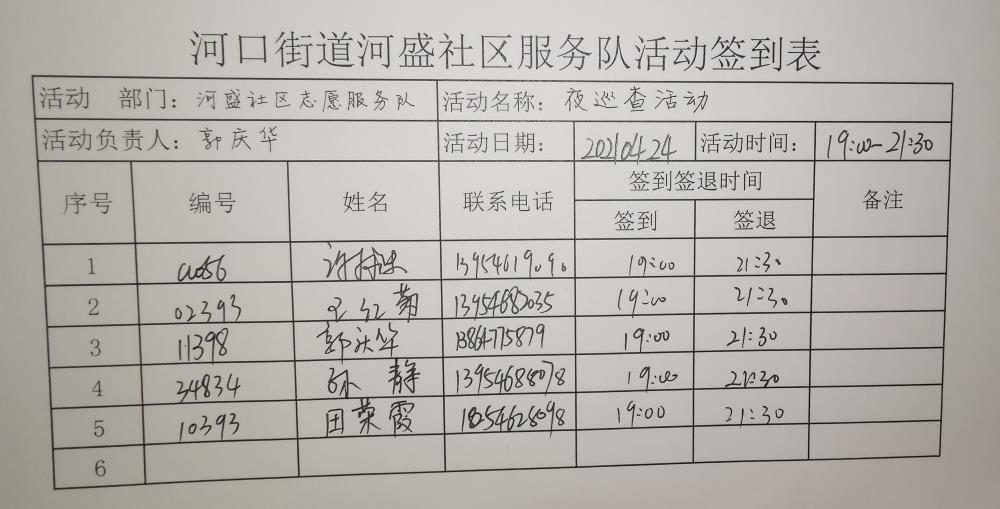 河口街道河盛社区服务队活动签到表
活动 部门：河盛社区志愿服务队 活动名称：夜巡查活动
活动负责人：郭庆华 活动日期：20210424 活动时间：19:00-21:30
序号 编号 姓名 联系电话 签到签退时间 备注
签到 签退
1 13954619090 19:00 21:30
2 02393 王红菊 13954682035 19:00 21:30
3 11398 郭庆华 13864775879 19:00 21:30
4 34834 孙静 13954688078 19:00 21:30
5 10393 田荣霞 18254628098 19:00 21:30
6